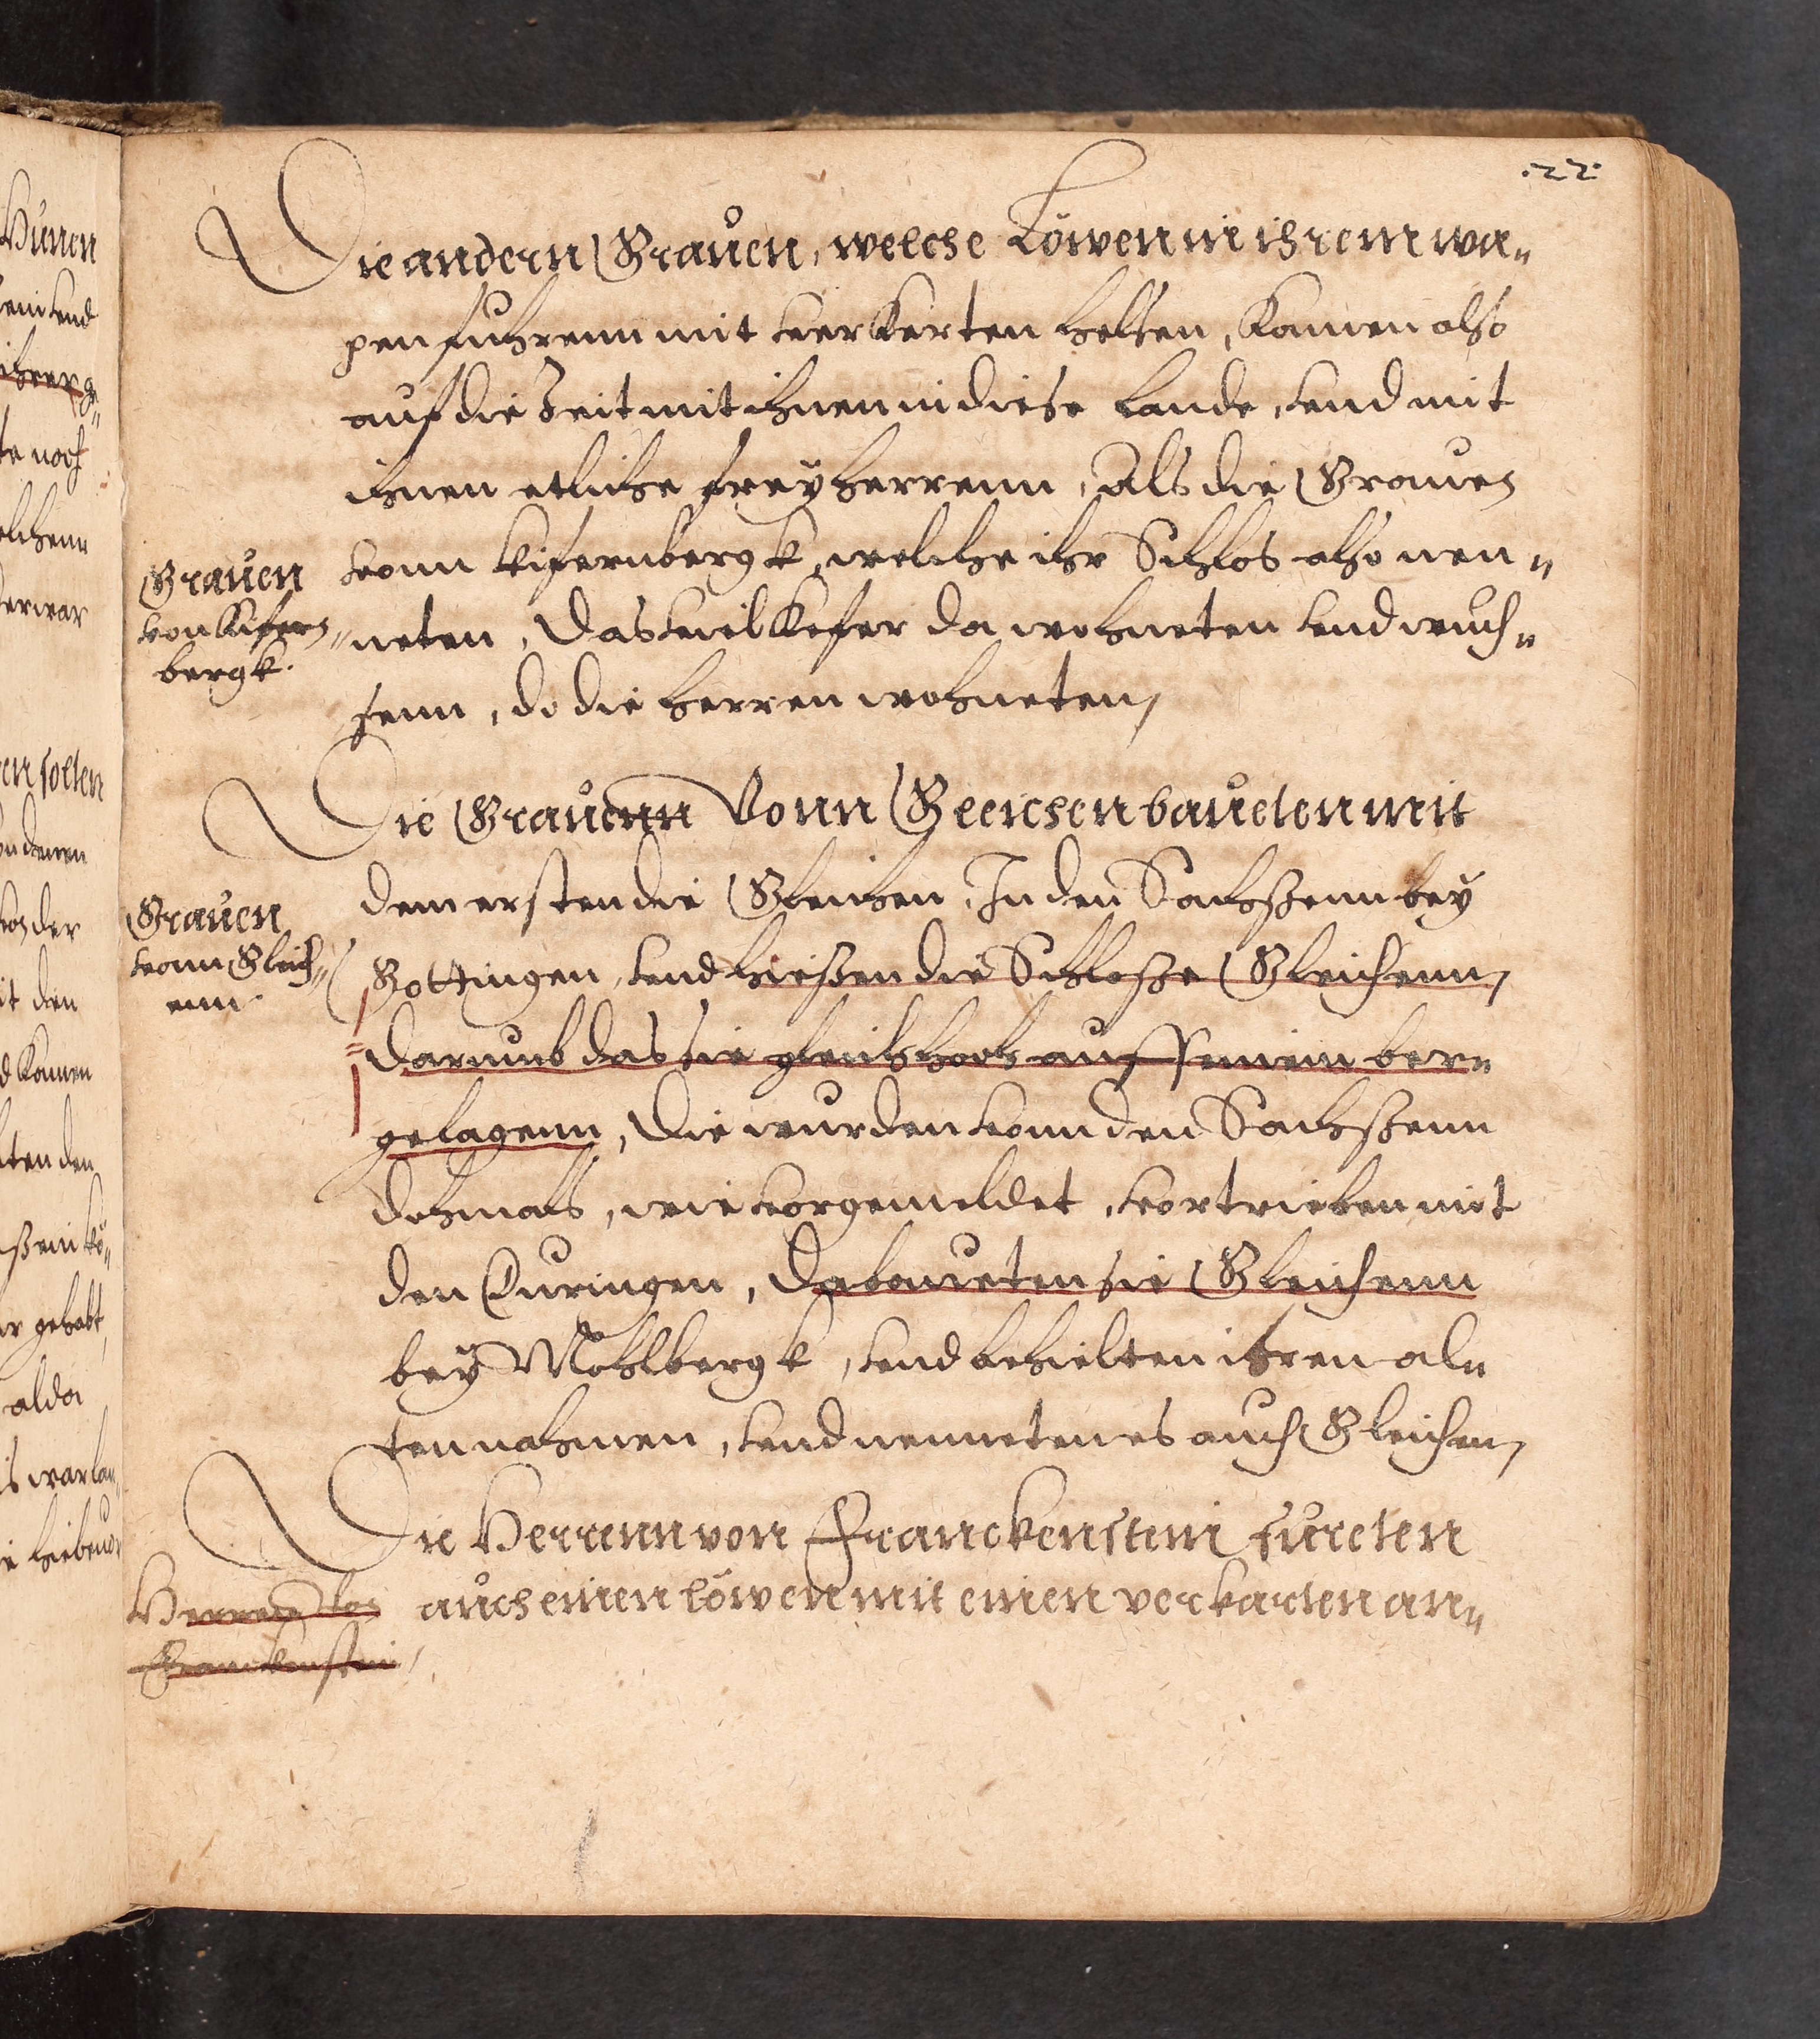 .22.
Die andern Grauen, welche Löwen in ihrem wa„
pen fuhrenn mit verkerten helsen, Kamen also
auf die Zeit mit ihnen in diese Lande, vnd mit
ihnen etliche freyherrenn, Als die Grauen
vonn kifernbergk, welche ihr Schlos also nen„
neten, Das viel Kefer da wohneten vnd wuch„
senn, do die herren wohneten,
Grauen
von Kifern„
bergk.
Die Grauenn Vonn Gleichen baueten mit
dem ersten die Gleichen, In den Sachssenn bey
Gottingen, vnd hiessen die Schlosse Gleichenn,
Darumb das sie gleich hoch auff einem ber„
ge lagenn, Die wurden vonn den Sachssenn
dohmals, wie vorgemeldet, vortrieben mit
den Duringen, Da baueten sie Gleichenn
bey Möhlbergk, vnd behielten ihren al„
ten nahmen, vnd nenneten es auch Gleichen,
Grauen
vonn Gleich„
enn.
Die Herrenn von Franckenstein fureten
auch einen löwen mit einen verkarten an„
Herren von
Franckenstein